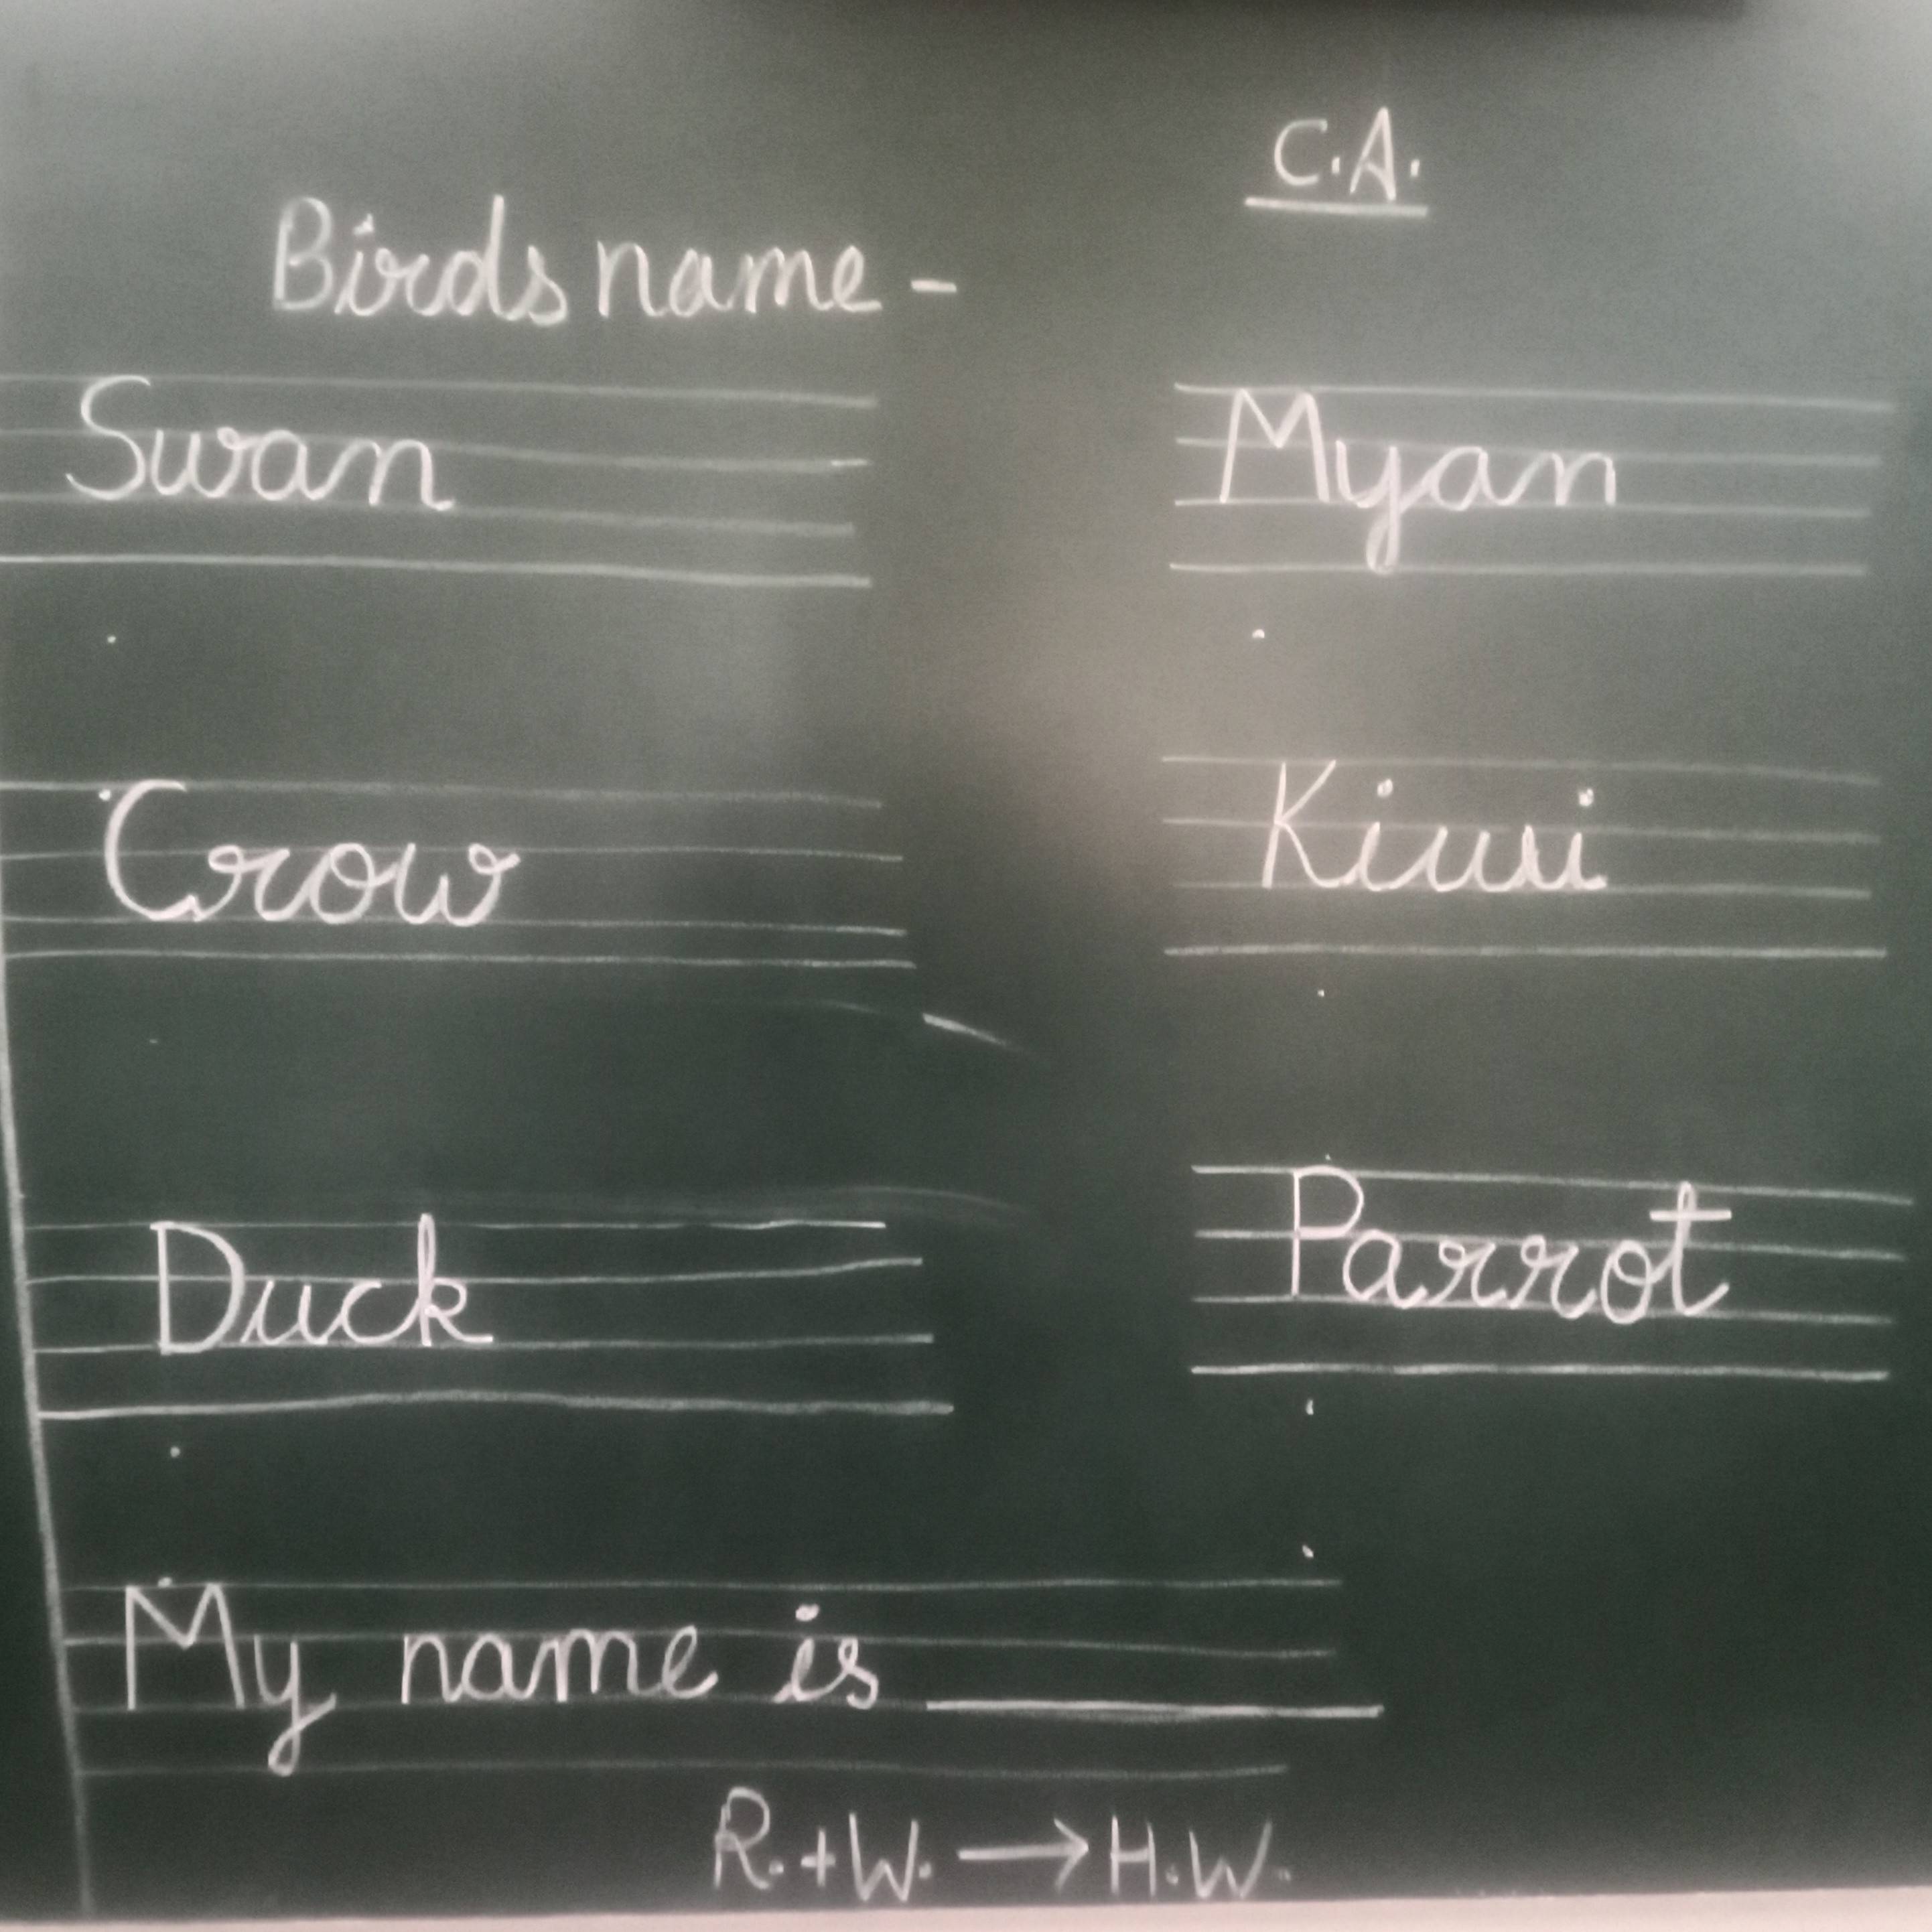 C.A.
Birds name -
Swan
Myan
Crow
Kiwi
Duck
Parrot
My name is ________
R.+W. → H.W.